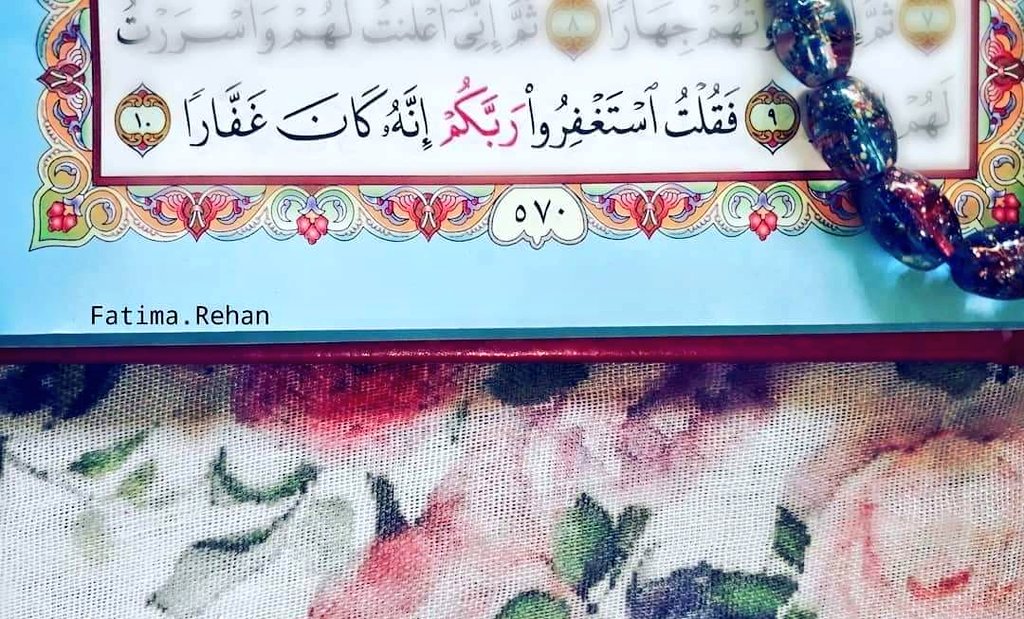 ثُمَّ إِنِّىٓ أَعْلَنتُ لَهُمْ وَأَسْرَرْتُ ٨ جِهَارًا ٧
لَهُمْ ٩ فَقُلْتُ ٱسْتَغْفِرُوا۟ رَبَّكُمْ إِنَّهُۥ كَانَ غَفَّارًا ١٠
٥٧٠
Fatima.Rehan